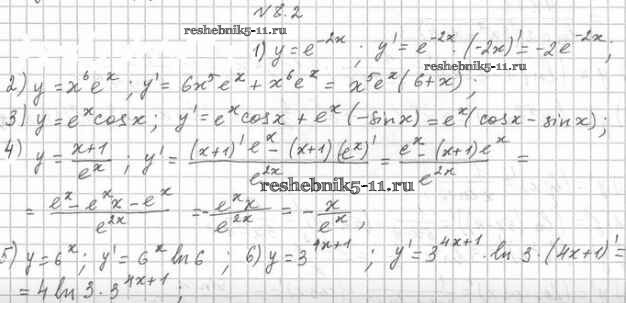 N 8.2
reshebnik5-11.ru
1) y = e^{-2x} ; y' = e^{-2x} · (-2x)' = -2e^{-2x} ;
2) y = x^6 e^x ; y' = 6x^5 e^x + x^6 e^x = x^5 e^x (6 + x) ;
3) y = e^x cos x ; y' = e^x cos x + e^x (-sin x) = e^x (cos x - sin x) ;
4) y = \frac{x+1}{e^x} ; y' = \frac{(x+1)' e^x - (x+1)(e^x)'}{e^{2x}} = \frac{e^x - (x+1) e^x}{e^{2x}} =
reshebnik5-11.ru
= \frac{e^x - e^x x - e^x}{e^{2x}} = -\frac{e^x x}{e^{2x}} = -\frac{x}{e^x} ,
5) y = 6^x ; y' = 6^x ln 6 ; 6) y = 3^{4x+1} ; y' = 3^{4x+1} · ln 3 · (4x+1)' =
= 4 ln 3 · 3^{4x+1} ;